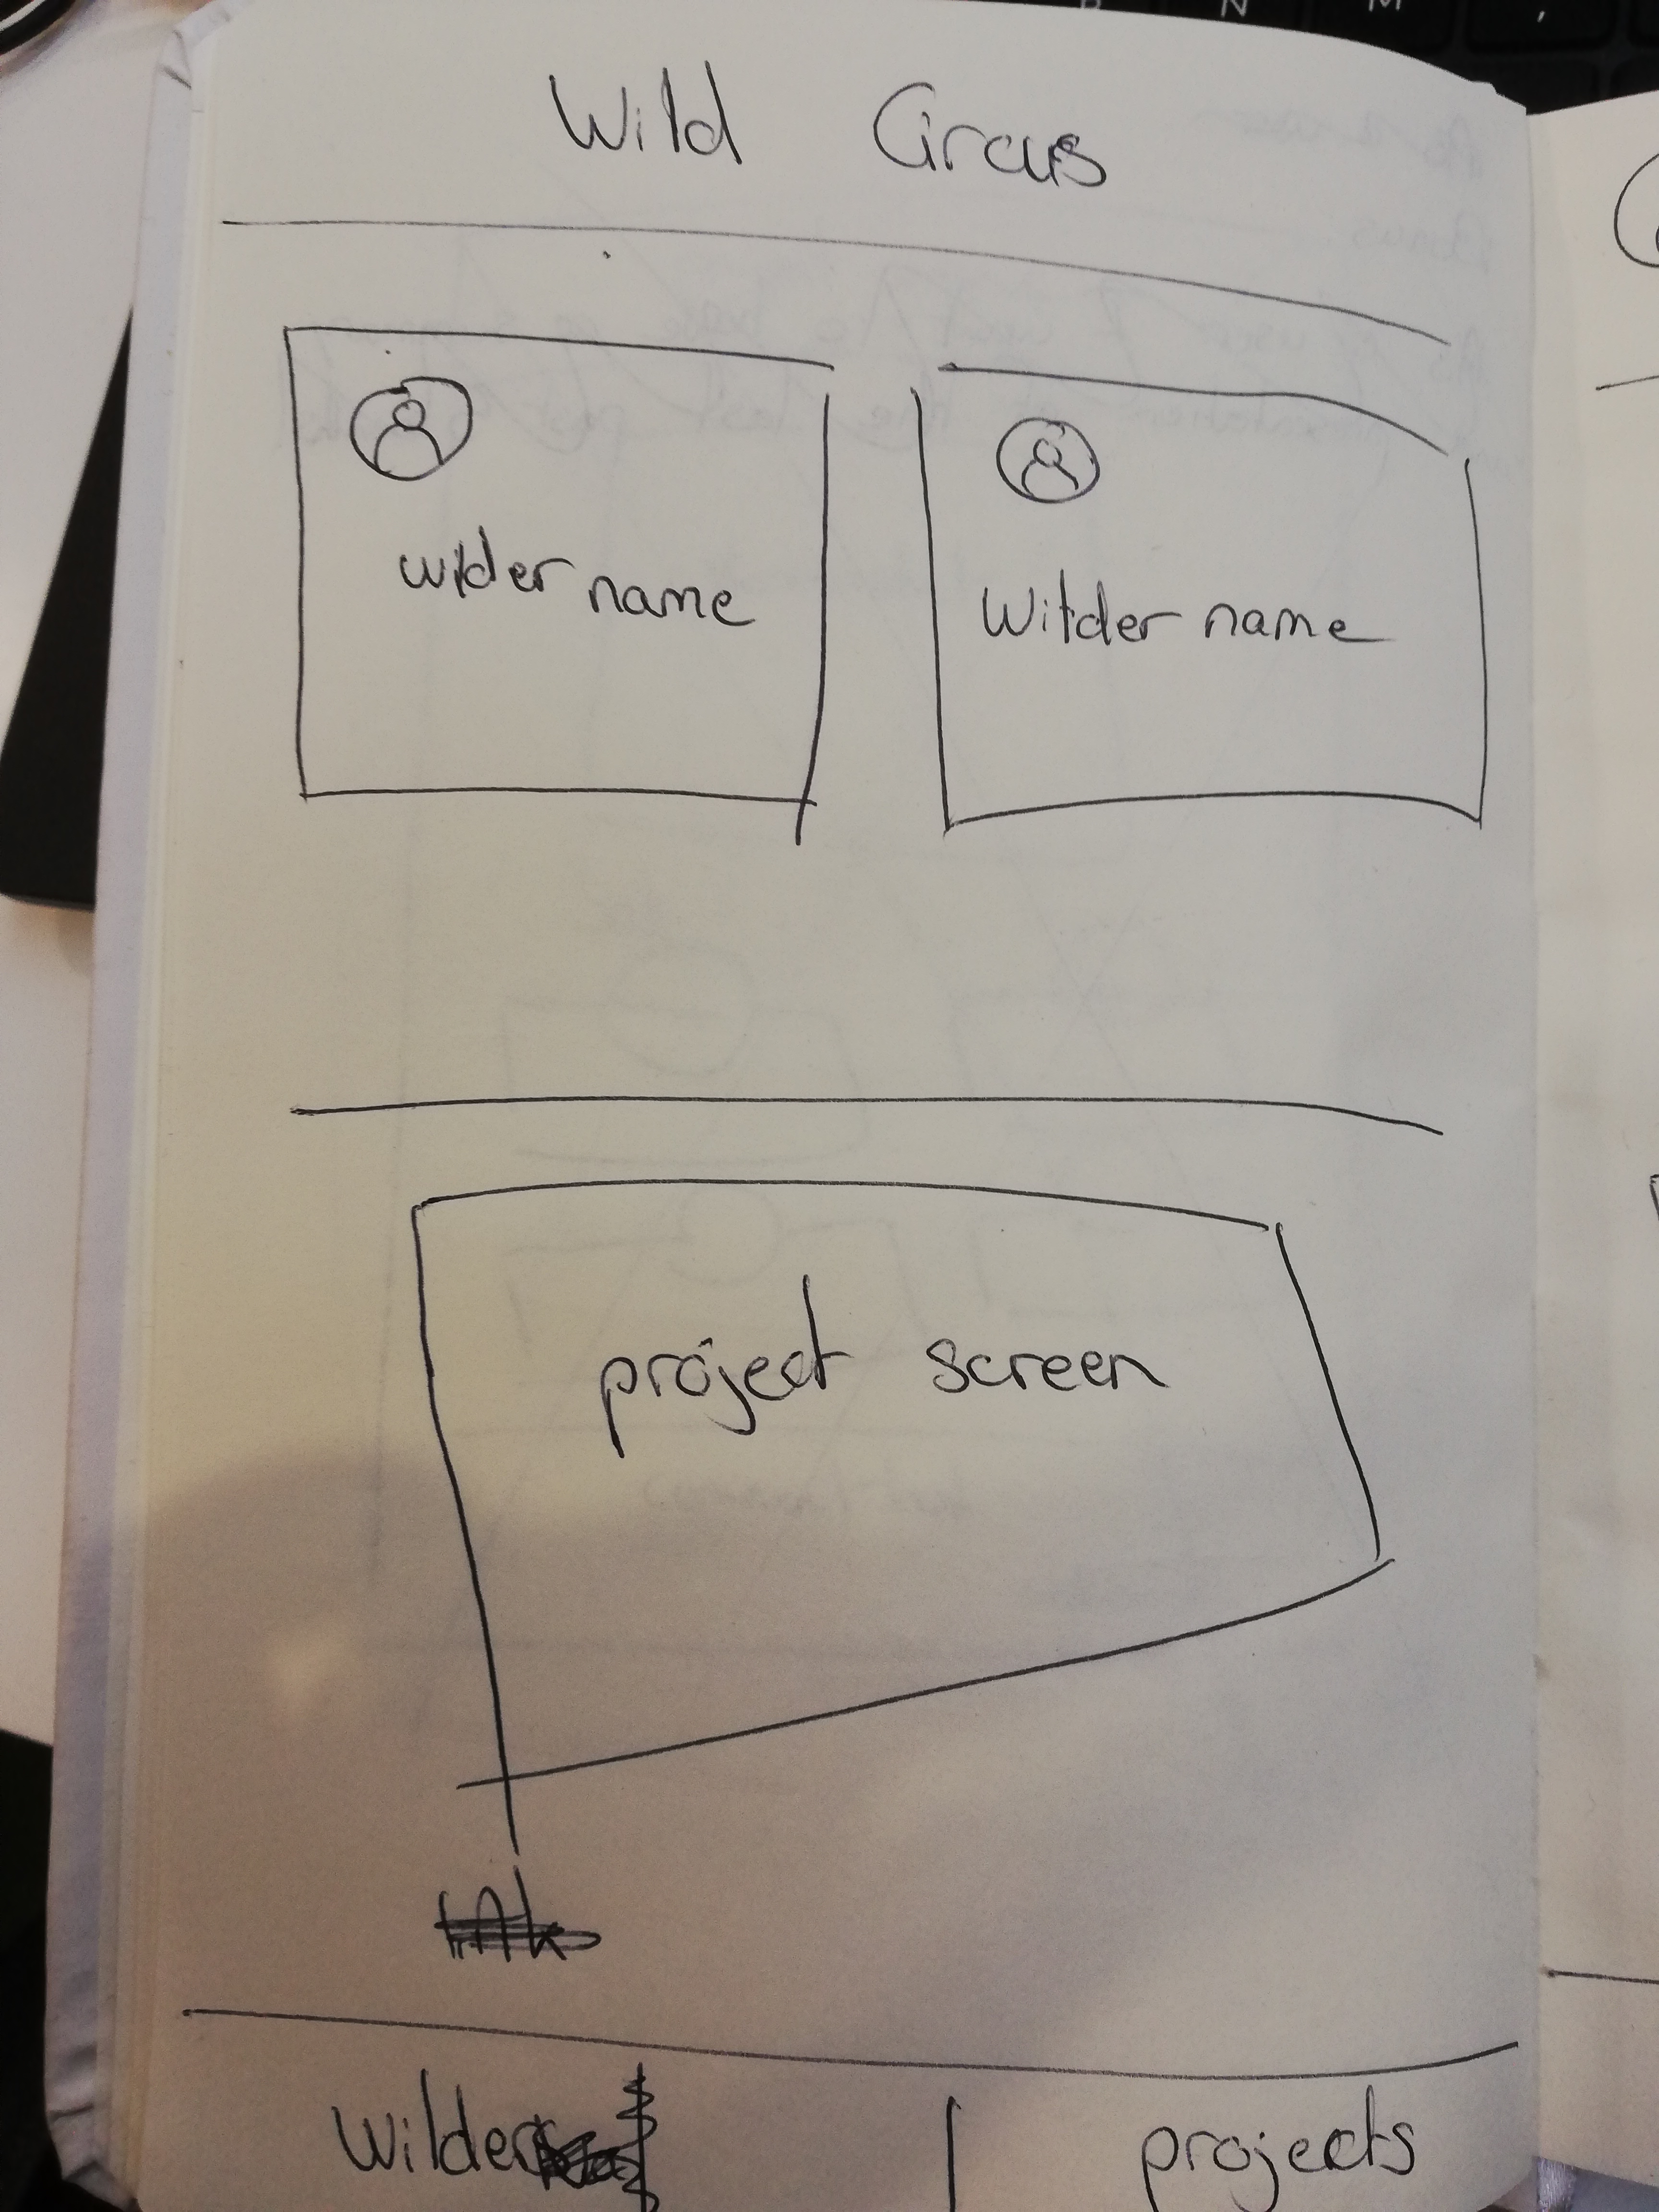 Wild Circus
wilder name
Wilder name
project screen
wilder
projects